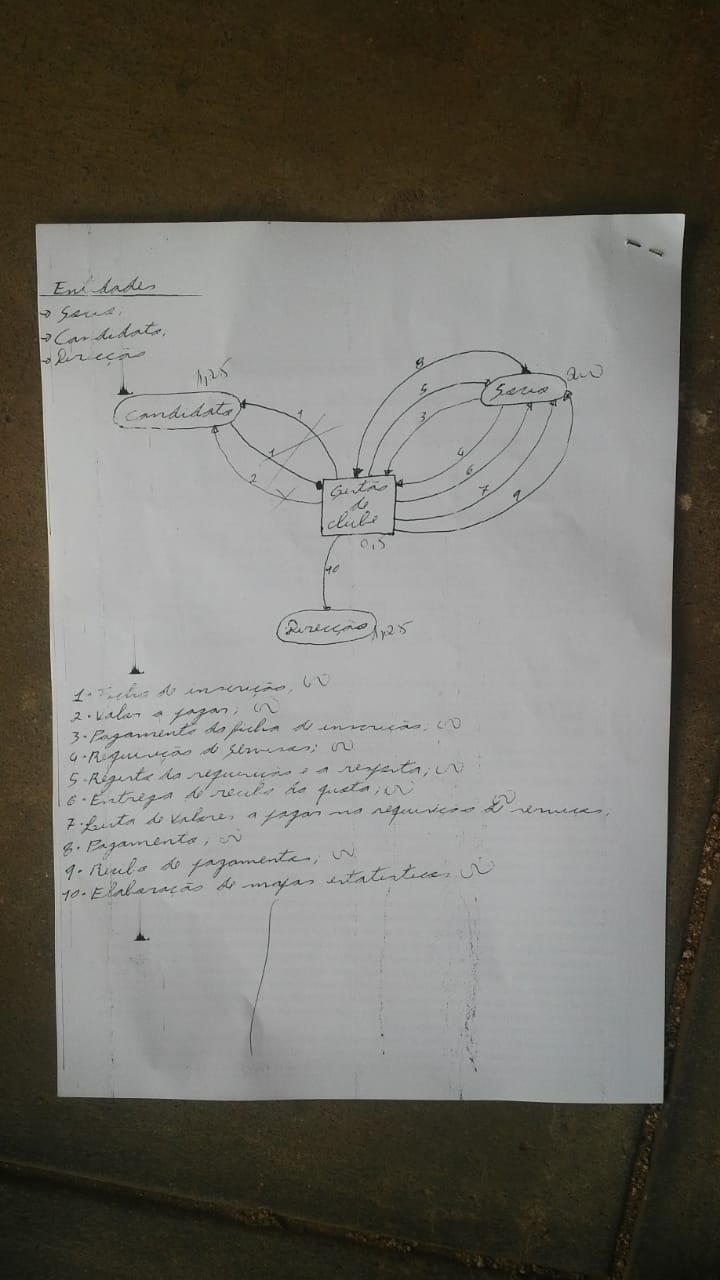 Entidades
→ Socio;
→ Candidato;
→ Direcção
1,25
Candidato
8
5
3
Socio
2,0
1
1
2
4
6
7
9
Gestão
de
clube
0,5
10
Direcção
1,25
1. Ficha de inscrição,
2. Valor a pagar;
3. Pagamento da ficha de inscrição,
4. Requisição de Serviços;
5. Registo da requisição e a resposta;
6. Entrega de recibo da quota;
7. Lista de Valores a pagar na requisição de serviços;
8. Pagamento,
9. Recibo de pagamentos;
10. Elaboração de mapas estatisticos